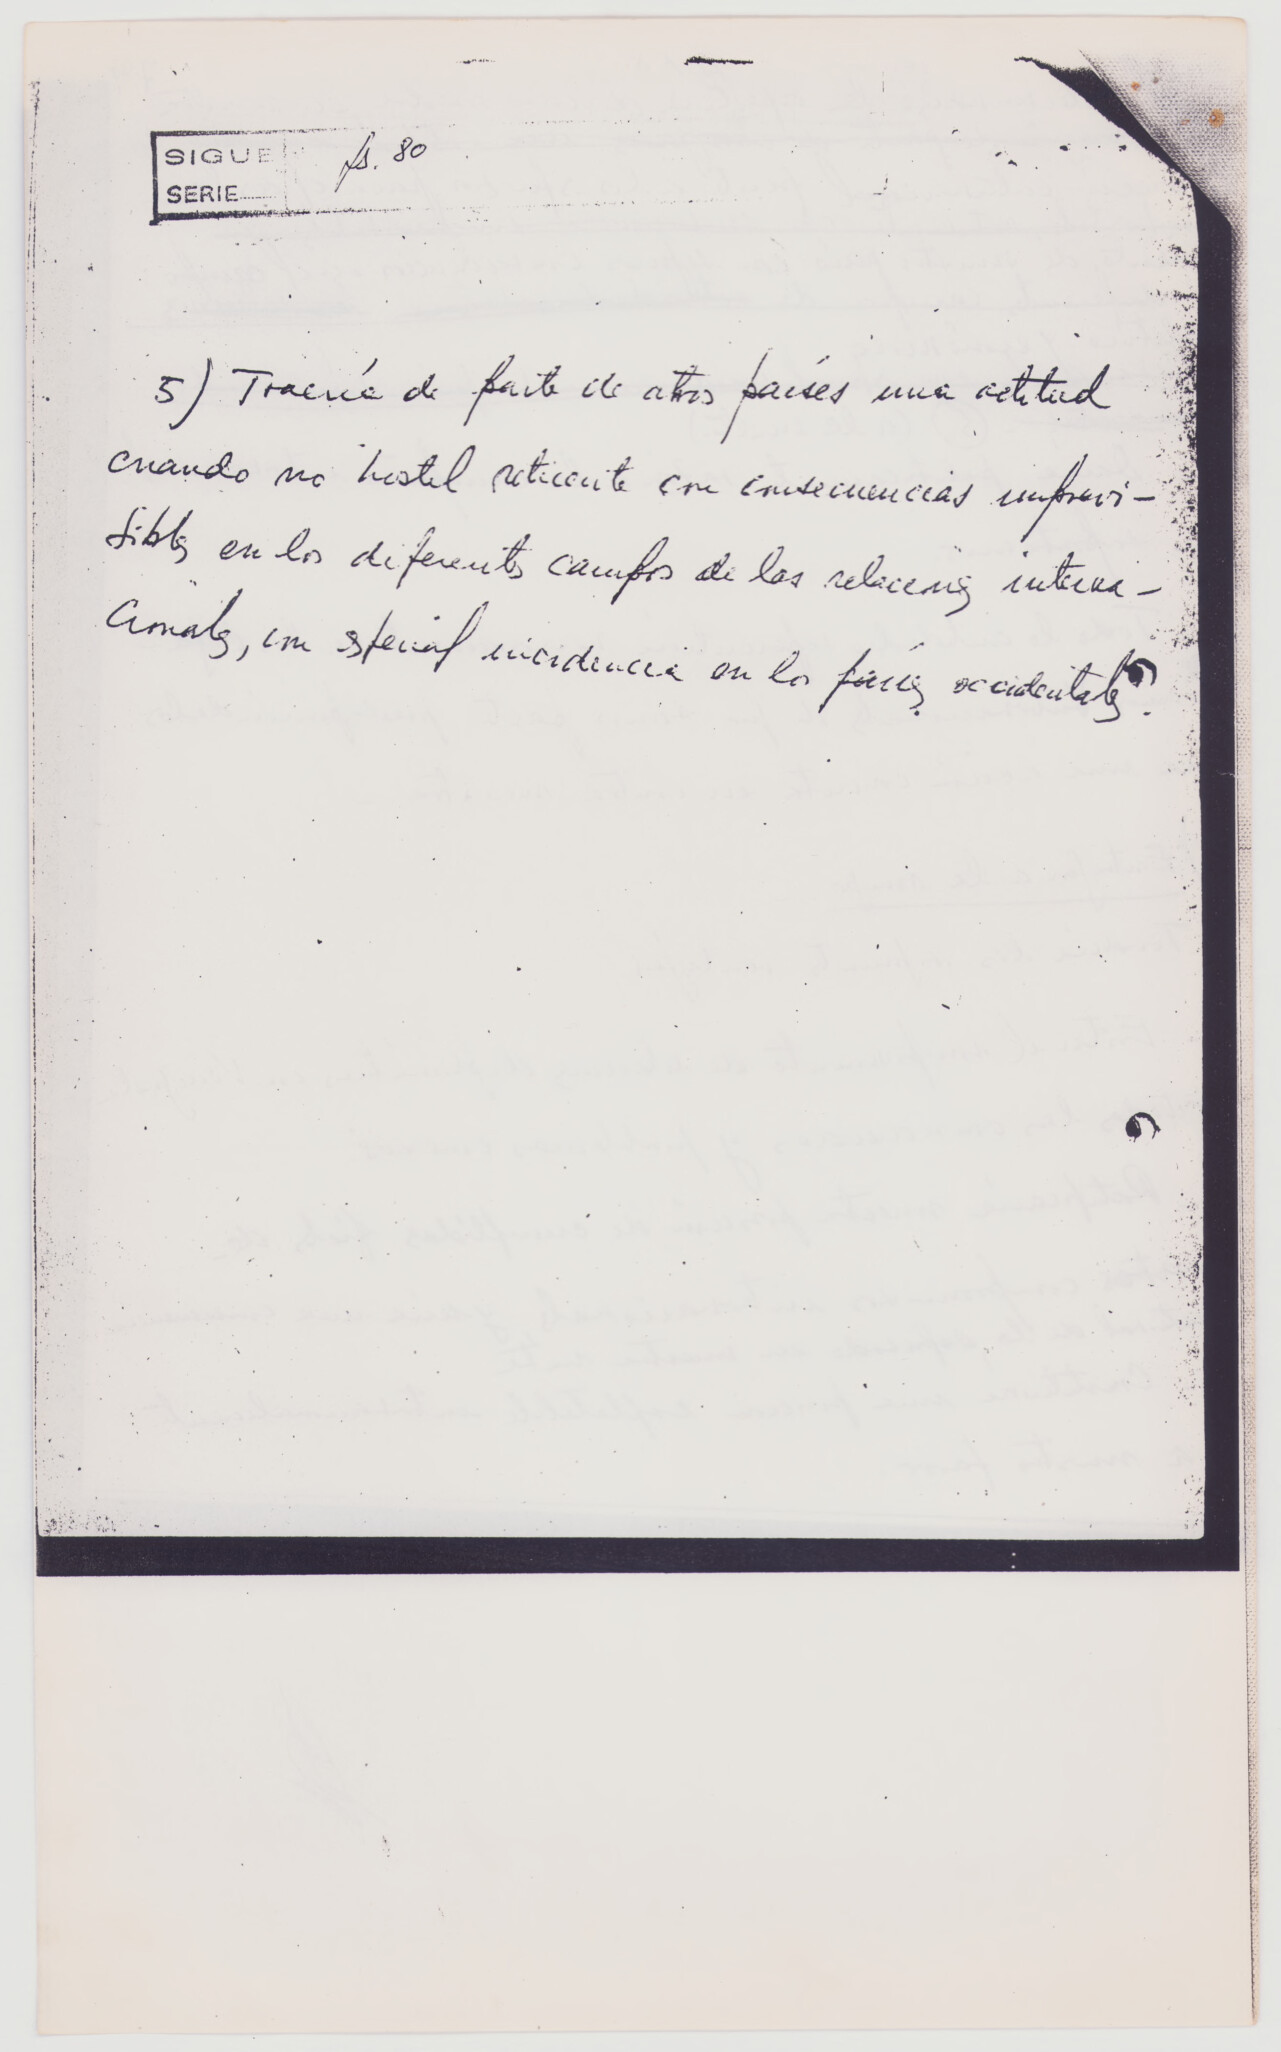 SIGUE fs. 80
SERIE
5) Traería de parte de otros países una actitud
cuando no hostil reticente con consecuencias imprevi-
sibles en los diferentes campos de las relaciones interna-
cionales, con especial incidencia en los países occidentales.